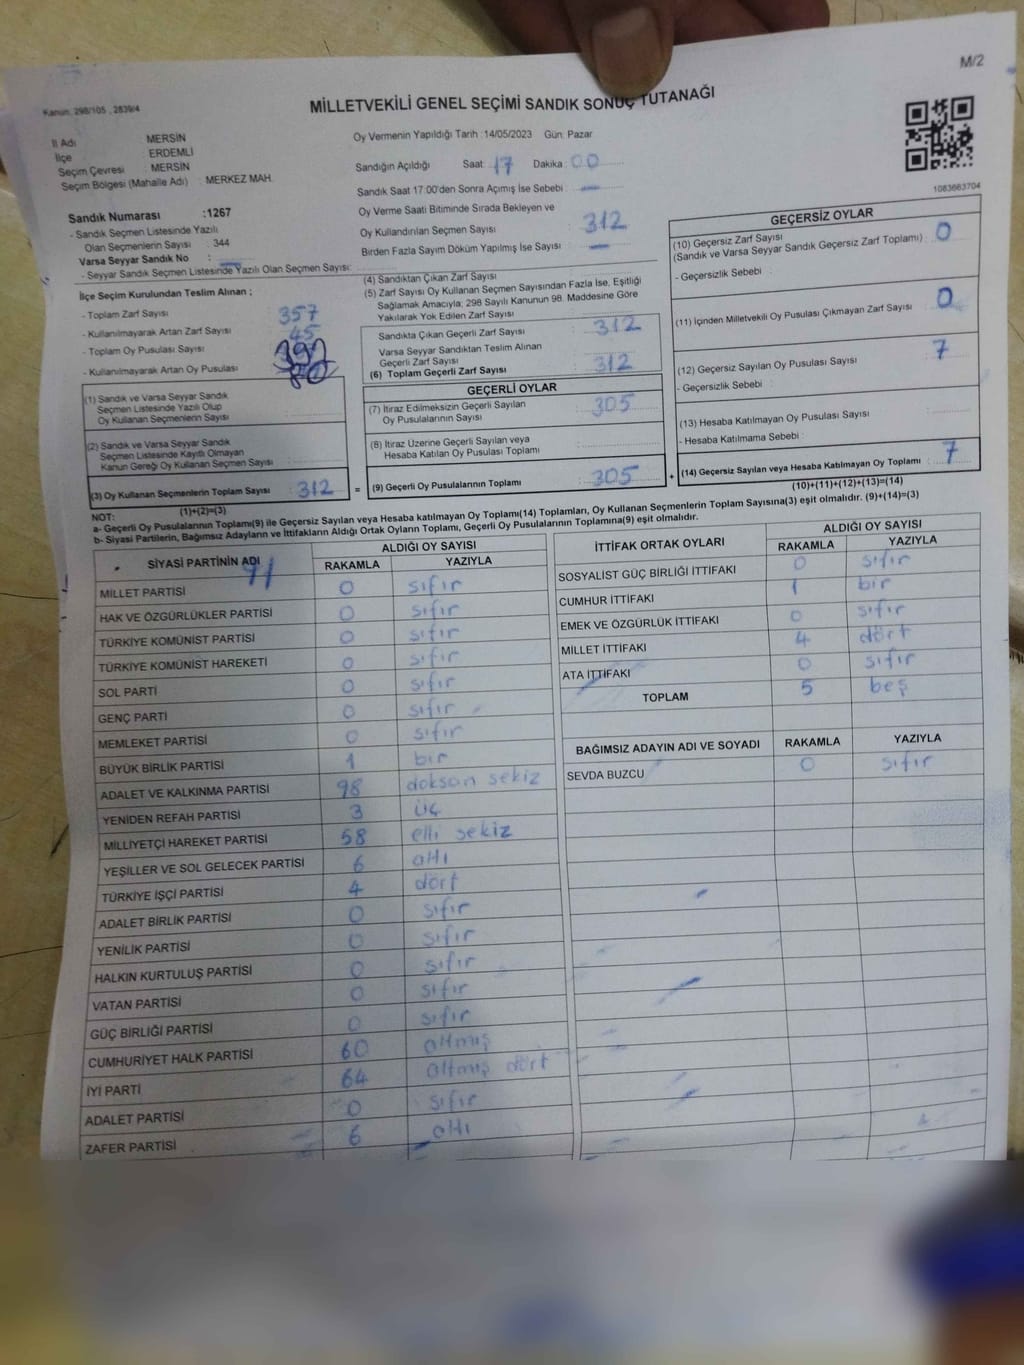 M/2
Kanun: 298/105 , 2839/4
MİLLETVEKİLİ GENEL SEÇİMİ SANDIK SONUÇ TUTANAĞI
İl Adı MERSİN
İlçe ERDEMLİ
Seçim Çevresi : MERSİN
Seçim Bölgesi (Mahalle Adı) : MERKEZ MAH.
Sandık Numarası :1267
- Sandık Seçmen Listesinde Yazılı
Olan Seçmenlerin Sayısı : 344
Varsa Seyyar Sandık No :
- Seyyar Sandık Seçmen Listesinde Yazılı Olan Seçmen Sayısı:
Oy Vermenin Yapıldığı Tarih :14/05/2023 Gün: Pazar
Sandığın Açıldığı Saat: 17 Dakika : 00
Sandık Saat 17.00'den Sonra Açımış İse Sebebi : —
Oy Verme Saati Bitiminde Sırada Bekleyen ve
Oy Kullandırılan Seçmen Sayısı : 312
Birden Fazla Sayım Döküm Yapılmış İse Sayısı : —
1083663704
İlçe Seçim Kurulundan Teslim Alınan ;
- Toplam Zarf Sayısı : 357
- Kullanılmayarak Artan Zarf Sayısı : 45
- Toplam Oy Pusulası Sayısı
- Kullanılmayarak Artan Oy Pusulası : 80
(1) Sandık ve Varsa Seyyar Sandık
Seçmen Listesinde Yazılı Olup
Oy Kullanan Seçmenlerin Sayısı :
(2) Sandık ve Varsa Seyyar Sandık
Seçmen Listesinde Kayıtlı Olmayan
Kanun Gereği Oy Kullanan Seçmen Sayısı :
(3) Oy Kullanan Seçmenlerin Toplam Sayısı : 312
(1)+(2)=(3)
(4) Sandıktan Çıkan Zarf Sayısı
(5) Zarf Sayısı Oy Kullanan Seçmen Sayısından Fazla İse, Eşitliği
Sağlamak Amacıyla; 298 Sayılı Kanunun 98. Maddesine Göre
Yakılarak Yok Edilen Zarf Sayısı :
Sandıkta Çıkan Geçerli Zarf Sayısı : 312
Varsa Seyyar Sandıktan Teslim Alınan
Geçerli Zarf Sayısı :
(6) Toplam Geçerli Zarf Sayısı : 312
GEÇERLİ OYLAR
(7) İtiraz Edilmeksizin Geçerli Sayılan
Oy Pusulalarının Sayısı : 305
(8) İtiraz Üzerine Geçerli Sayılan veya
Hesaba Katılan Oy Pusulası Toplamı :
= (9) Geçerli Oy Pusulalarının Toplamı : 305 +
GEÇERSİZ OYLAR
(10) Geçersiz Zarf Sayısı : 0
(Sandık ve Varsa Seyyar Sandık Geçersiz Zarf Toplamı)
- Geçersizlik Sebebi :
(11) İçinden Milletvekili Oy Pusulası Çıkmayan Zarf Sayısı : 0
(12) Geçersiz Sayılan Oy Pusulası Sayısı : 7
- Geçersizlik Sebebi :
(13) Hesaba Katılmayan Oy Pusulası Sayısı :
- Hesaba Katılmama Sebebi :
(14) Geçersiz Sayılan veya Hesaba Katılmayan Oy Toplamı : 7
(10)+(11)+(12)+(13)=(14)
NOT:
a- Geçerli Oy Pusulalarının Toplamı(9) ile Geçersiz Sayılan veya Hesaba katılmayan Oy Toplamı(14) Toplamları, Oy Kullanan Seçmenlerin Toplam Sayısına(3) eşit olmalıdır. (9)+(14)=(3)
b- Siyasi Partilerin, Bağımsız Adayların ve İttifakların Aldığı Ortak Oyların Toplamı, Geçerli Oy Pusulalarının Toplamına(9) eşit olmalıdır.
SİYASİ PARTİNİN ADI ALDIĞI OY SAYISI
RAKAMLA YAZIYLA
MİLLET PARTİSİ 0 sıfır
HAK VE ÖZGÜRLÜKLER PARTİSİ 0 sıfır
TÜRKİYE KOMÜNİST PARTİSİ 0 sıfır
TÜRKİYE KOMÜNİST HAREKETİ 0 sıfır
SOL PARTİ 0 sıfır
GENÇ PARTİ 0 sıfır
MEMLEKET PARTİSİ 0 sıfır
BÜYÜK BİRLİK PARTİSİ 1 bir
ADALET VE KALKINMA PARTİSİ 98 doksan sekiz
YENİDEN REFAH PARTİSİ 3 üç
MİLLİYETÇİ HAREKET PARTİSİ 58 elli sekiz
YEŞİLLER VE SOL GELECEK PARTİSİ 6 altı
TÜRKİYE İŞÇİ PARTİSİ 4 dört
ADALET BİRLİK PARTİSİ 0 sıfır
YENİLİK PARTİSİ 0 sıfır
HALKIN KURTULUŞ PARTİSİ 0 sıfır
VATAN PARTİSİ 0 sıfır
GÜÇ BİRLİĞİ PARTİSİ 0 sıfır
CUMHURİYET HALK PARTİSİ 60 altmış
İYİ PARTİ 64 altmış dört
ADALET PARTİSİ 0 sıfır
ZAFER PARTİSİ 6 altı
İTTİFAK ORTAK OYLARI ALDIĞI OY SAYISI
RAKAMLA YAZIYLA
SOSYALİST GÜÇ BİRLİĞİ İTTİFAKI 0 sıfır
CUMHUR İTTİFAKI 1 bir
EMEK VE ÖZGÜRLÜK İTTİFAKI 0 sıfır
MİLLET İTTİFAKI 4 dört
ATA İTTİFAKI 0 sıfır
TOPLAM 5 beş
BAĞIMSIZ ADAYIN ADI VE SOYADI RAKAMLA YAZIYLA
SEVDA BUZCU 0 sıfır